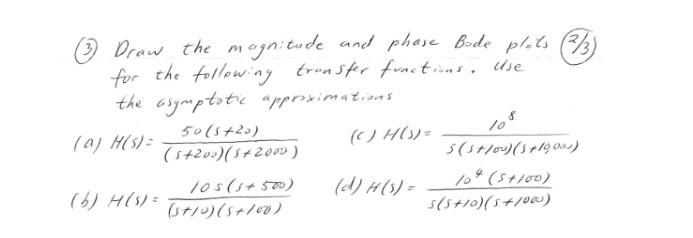 ③ Draw the magnitude and phase Bode plots (2/3)
for the following transfer functions. Use
the asymptotic approximations
(a) H(s) = 50(s+20) / (s+200)(s+2000)
(c) H(s) = 10^8 / s(s+100)(s+10,000)
(b) H(s) = 10s(s+500) / (s+10)(s+100)
(d) H(s) = 10^4 (s+100) / s(s+10)(s+1000)